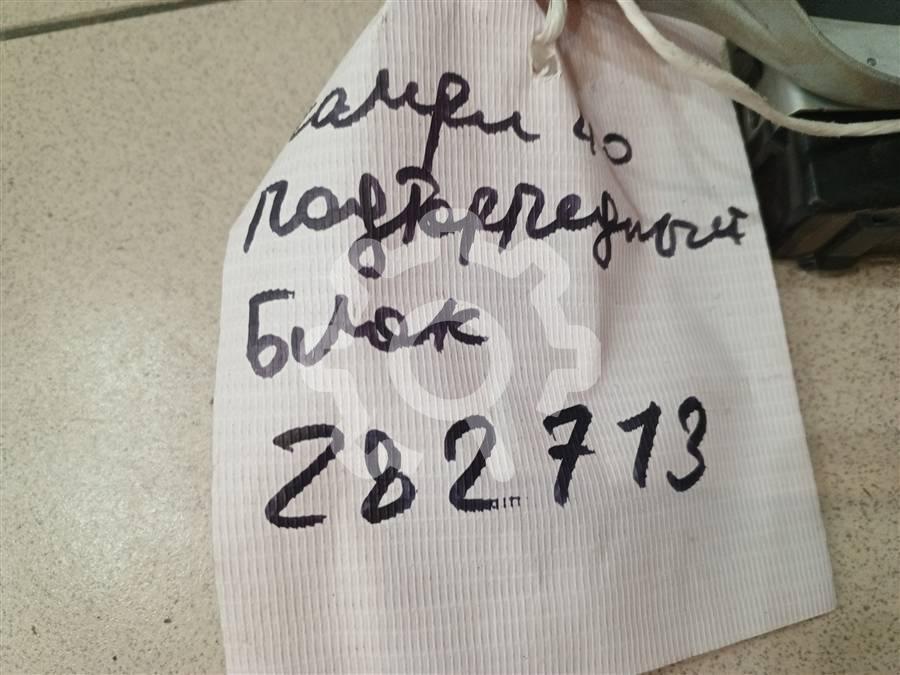 камри 40
подторпедный
Блок
282713